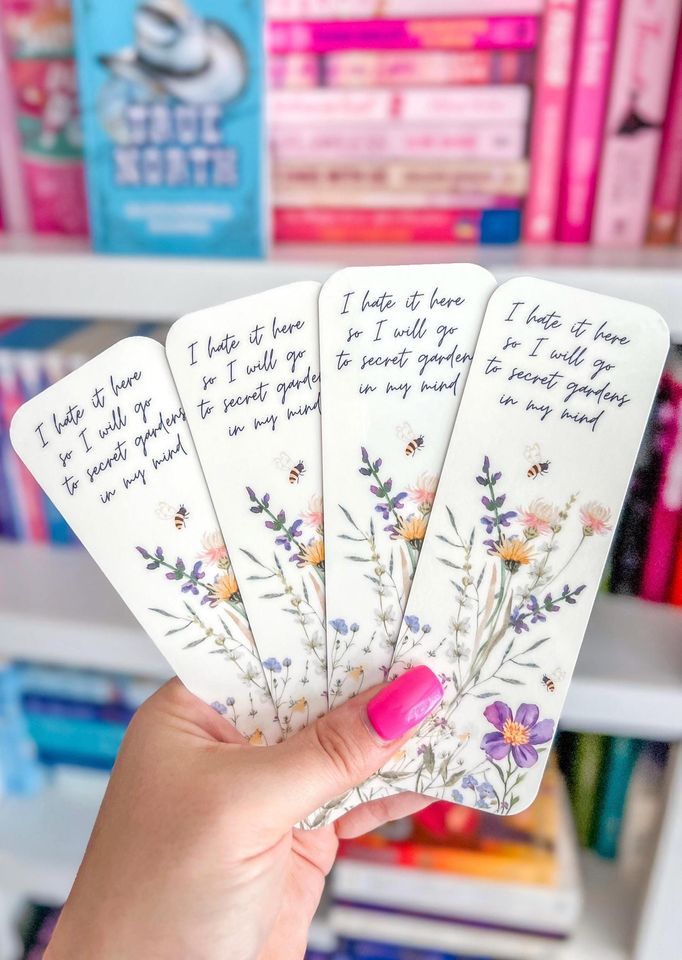 TRUE
NORTH
I hate it here
so I will go
to secret gardens
in my mind
I hate it here
so I will go
to secret garde
in my mind
I hate it here
so I will go
to secret garden
in my mind
I hate it here
so I will go
to secret gardens
in my mind